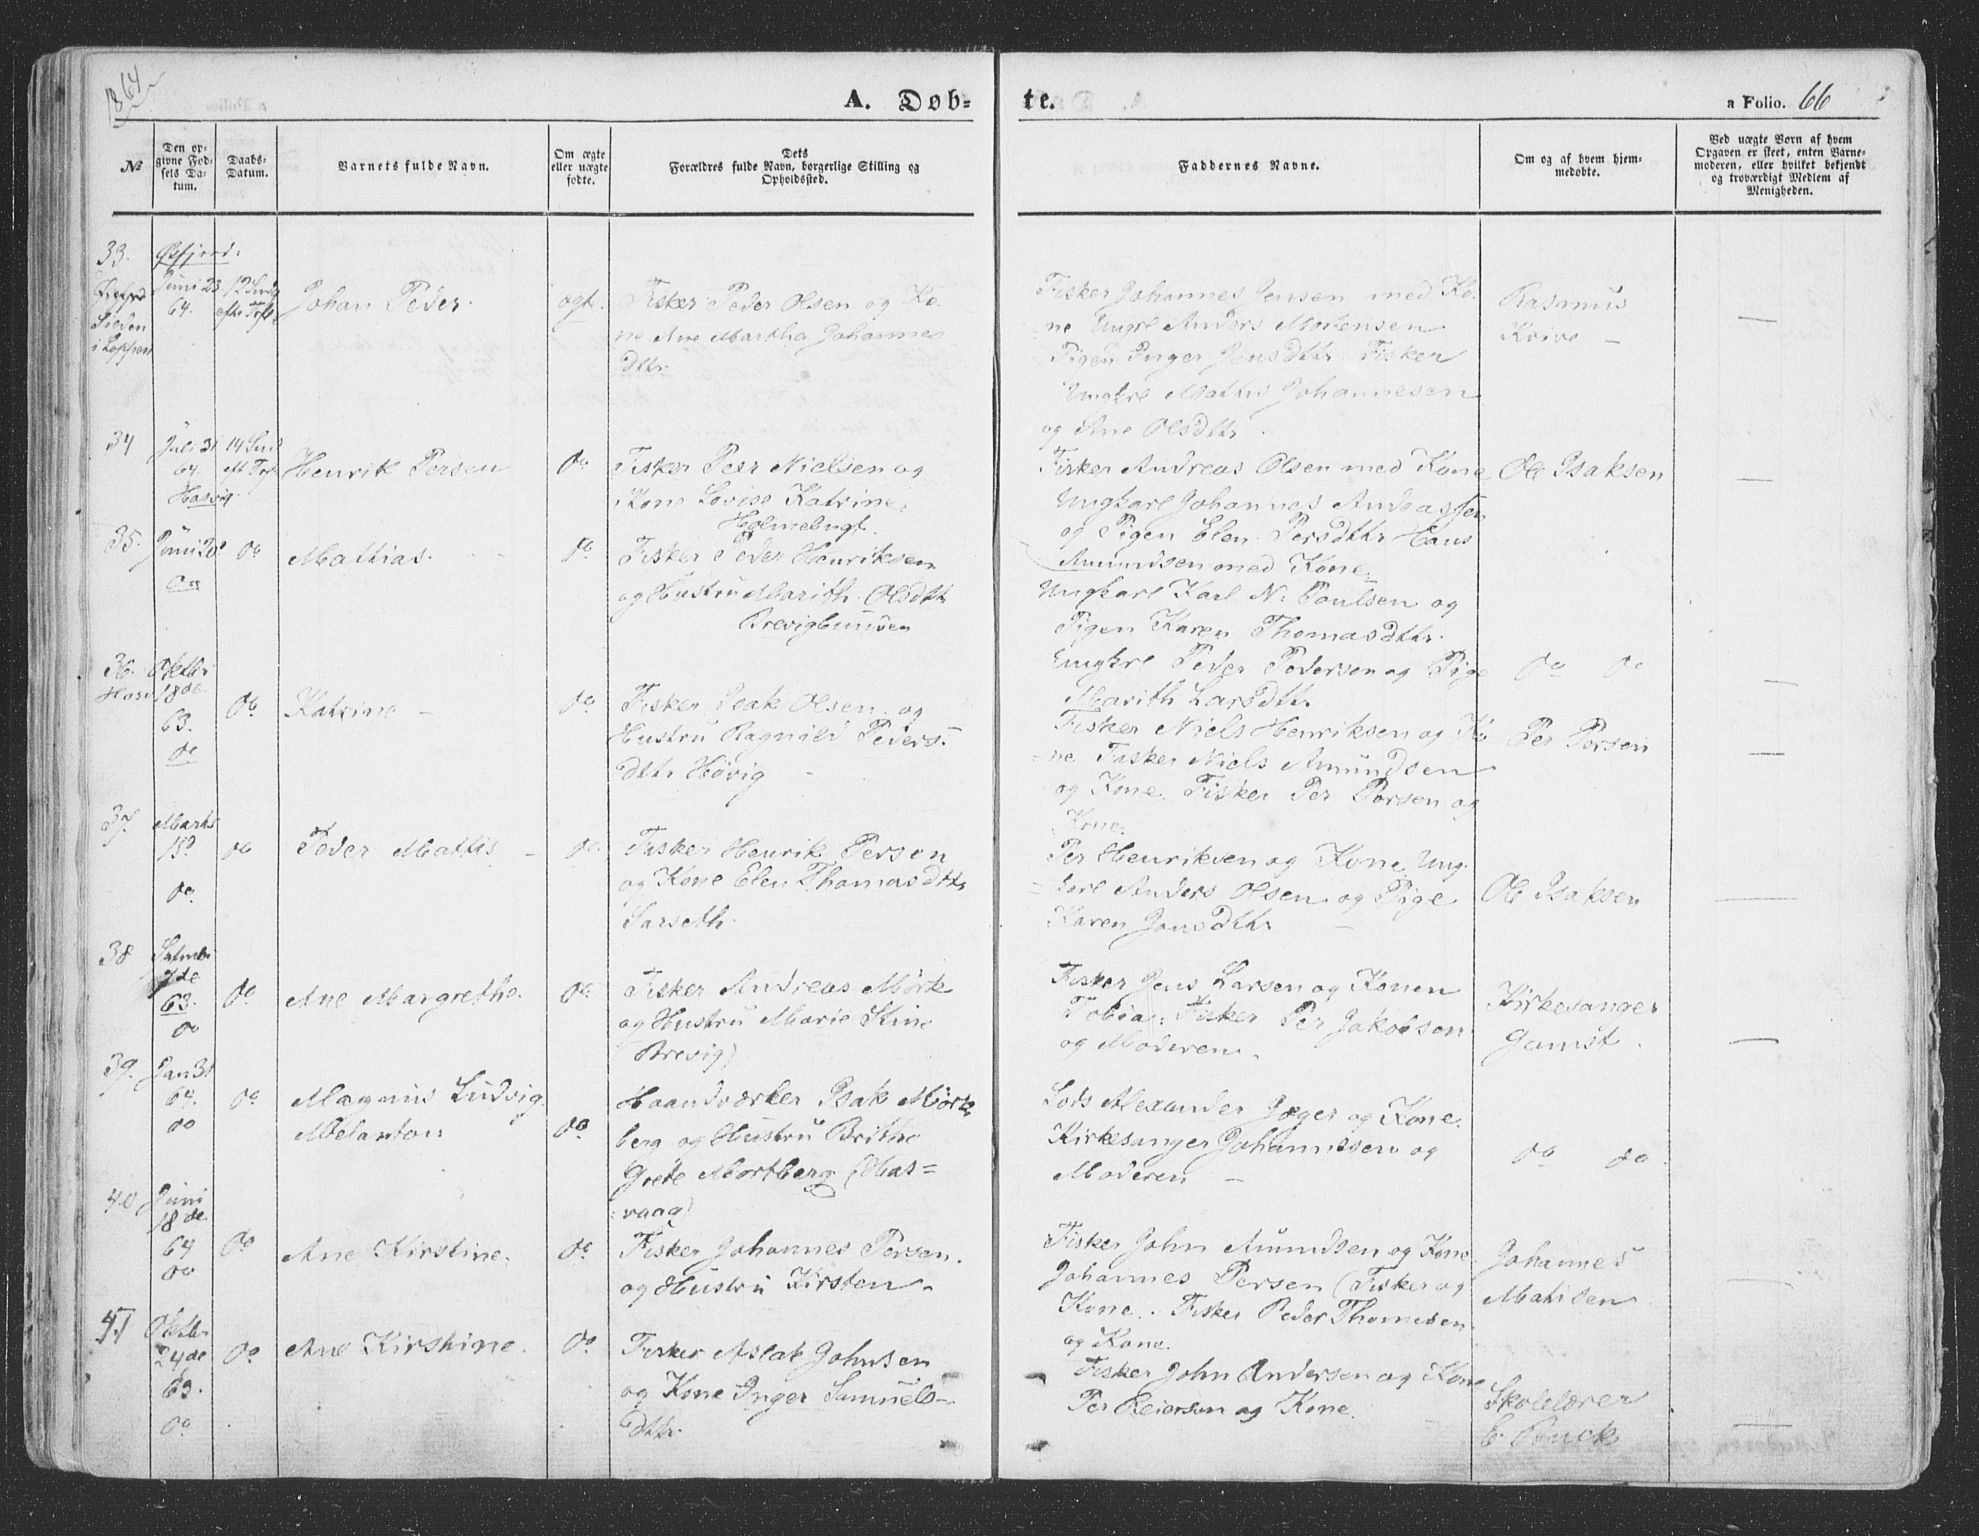 1864
A. Døb-
te.
a Folio. 66
No
Den op-
givne Fød-
sels Da-
tum.
Daabs-
Datum.
Barnets fulde Navn.
Om ægte
eller uægte
fødte.
Dets
Forældres fulde Navn, borgerlige Stilling og
Opholdssted.
Faddernes Navne.
Om og af hvem hjem-
medøbte.
Ved uægte Børn af hvem
Opgaven er skeet, enten Barne-
moderen, eller hvilket bekjendt
og troværdigt Medlem af
Menigheden.
33.
Øxfjord:
i Loppen
Juni 23
64.
12 Sndg
efter Tfst.
Johan Peder
ægt.
Fisker Peder Olsen og Ko-
ne Ane Martha Johannes
Dttr.
Fisker Johannes Jensen med Ko-
ne Ungkrl Anders Mortensen
Pigen Inger Jensdttr Fisker
Ungkrl Mathis Johannesen
og Ane Olsdttr.
Rasmus
Kvive –
34
Juli 31
64.
Hasvig
14 Snd
eft. Tfst
Henrik Persen
do
Fisker Peer Nielsen og
Kone Lovise Katrine
Holmebugt.
Fisker Andreas Olsen med Kone
Ungkarl Johannes Andreassen
og Pigen Elen Persdttr Hans
Amundsen med Kone.
Ole Isaksen
35.
Juni 20
do
do
Mathias.
do
Fisker Peder Henriksen
og Hustru Marith Olsdttr
Brevigbunden
Ungkarl Karl N. Poulsen og
Pigen Karen Thomasdttr.
Ungkrl Peder Pedersen og Pige
Marith Larsdttr
do do
36.
Hasv
Oktbr
18de
63.
do
do
Katrine –
do
Fisker Isak Olsen og
Hustru Ragnild Peders-
dttr Høvig –
Fisker Niels Henriksen og Ko
ne Fisker Niels Amundsen
og Kone. Fisker Per Persen og
Kone.
Per Persen
37.
Marts
15d
do
do
Peder Mathis –
do
Fisker Henrik Person
og Kone Elen Thomasdttr
Sarseth.
Per Henriksen og Kone Ung-
karl Anders Olsen og Pige
Karen Jonsdttr –
Ole Isaksen
38
7de
63.
do
do
Ane Margrethe.
do
Fisker Andreas Mørk
og Hustru Marie Stine
(Brevig)
Fisker Jens Larsen og Konen
Tobia. Fisker Per Jakobsen
og Moderen.
Kirkesanger
Gamst.
39.
Jan 31
64.
do
do
Magnus Ludvig
Melanton
do
Haandværker Isak Mørk
berg og Hustru Brithe
Grete Mortberg (Has=
vaag)
Lods Alexander Jæger og Kone.
Kirkesanger Johannessen og
Moderen –
do do
40
Juni
18de
64
do
do
Ane Kirstine.
do
Fisker Johannes Persen.
og Hustru Kirsten.
Fisker John Amundsen og Kone
Johannes Persen (Fisker og
Kone. Fisker Peder Thomesen
og Kone.
Johannes
Matisen
41
Oktbr
24de
63.
do
do
Ane Kirstine.
do
Fisker Aslak Johnsen
og Kone Inger Samuels-
dttr.
Fisker John Andersen og Kone
Per Reiersen og Kone.
Skolelærer
E. Bruck